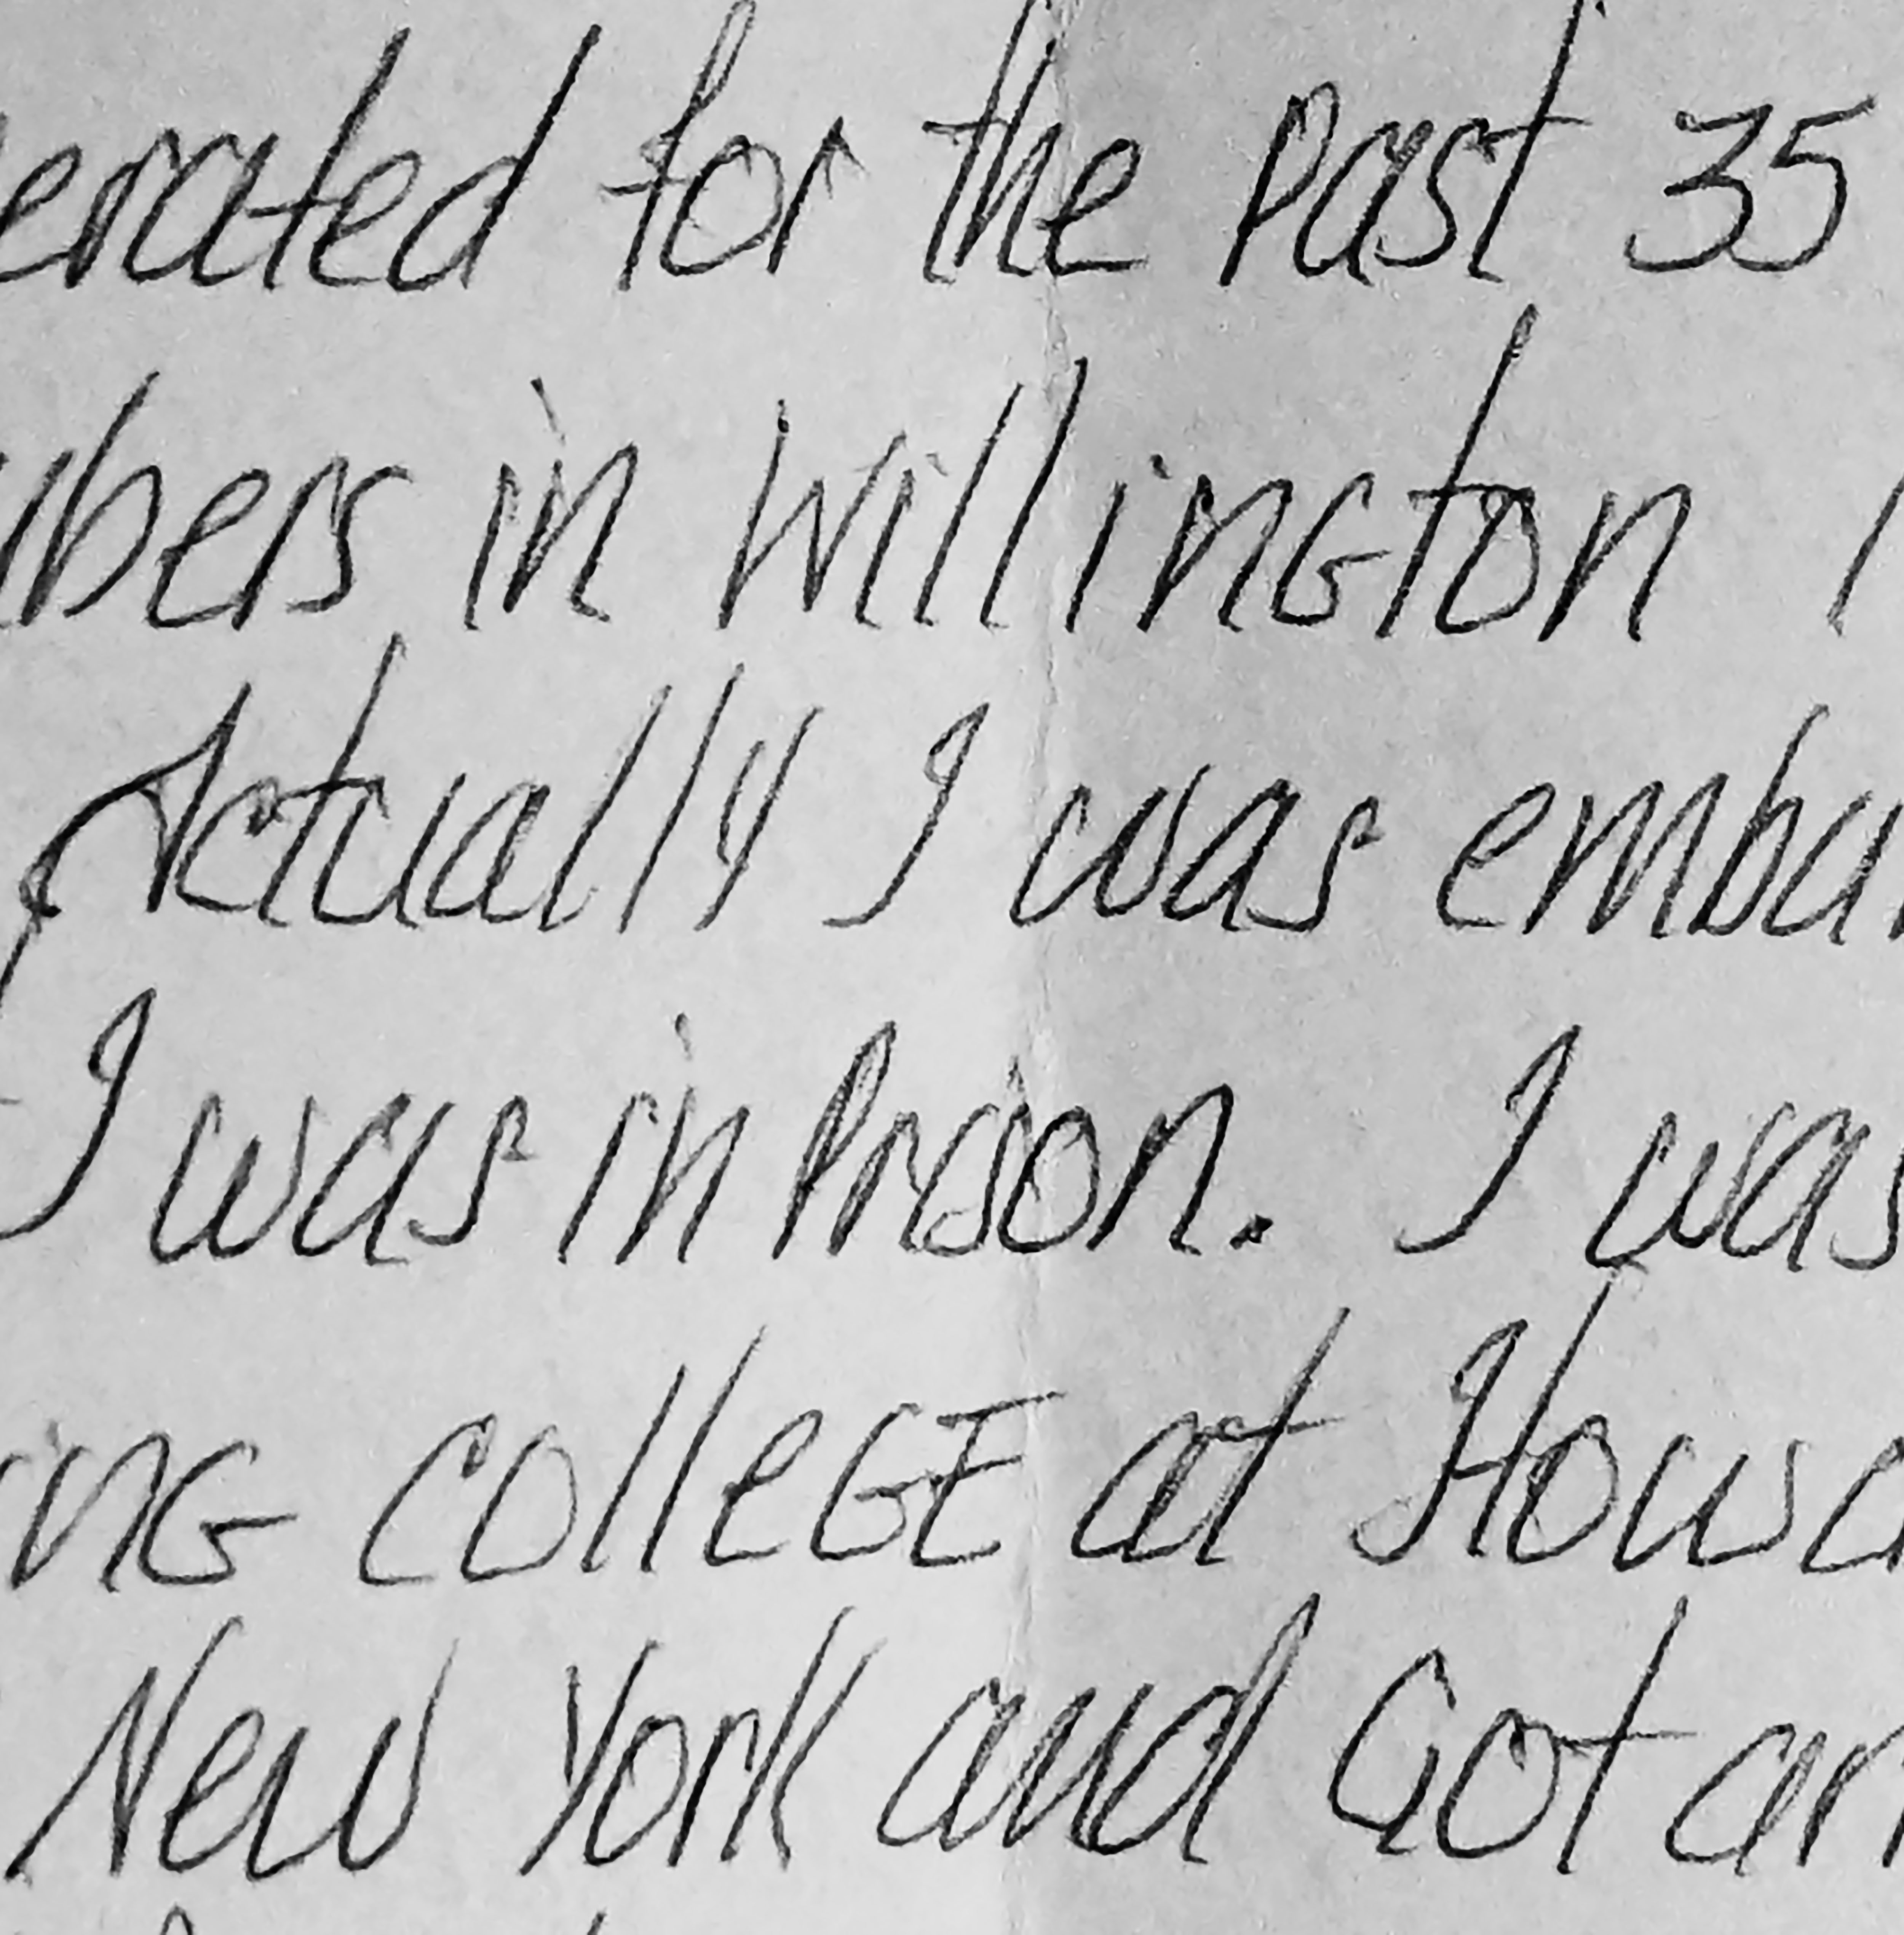 erated for the past 35
bers in Willington
Actually I was emba
I was in Prison. I was
ing collegE at Howa
New York and Got ar